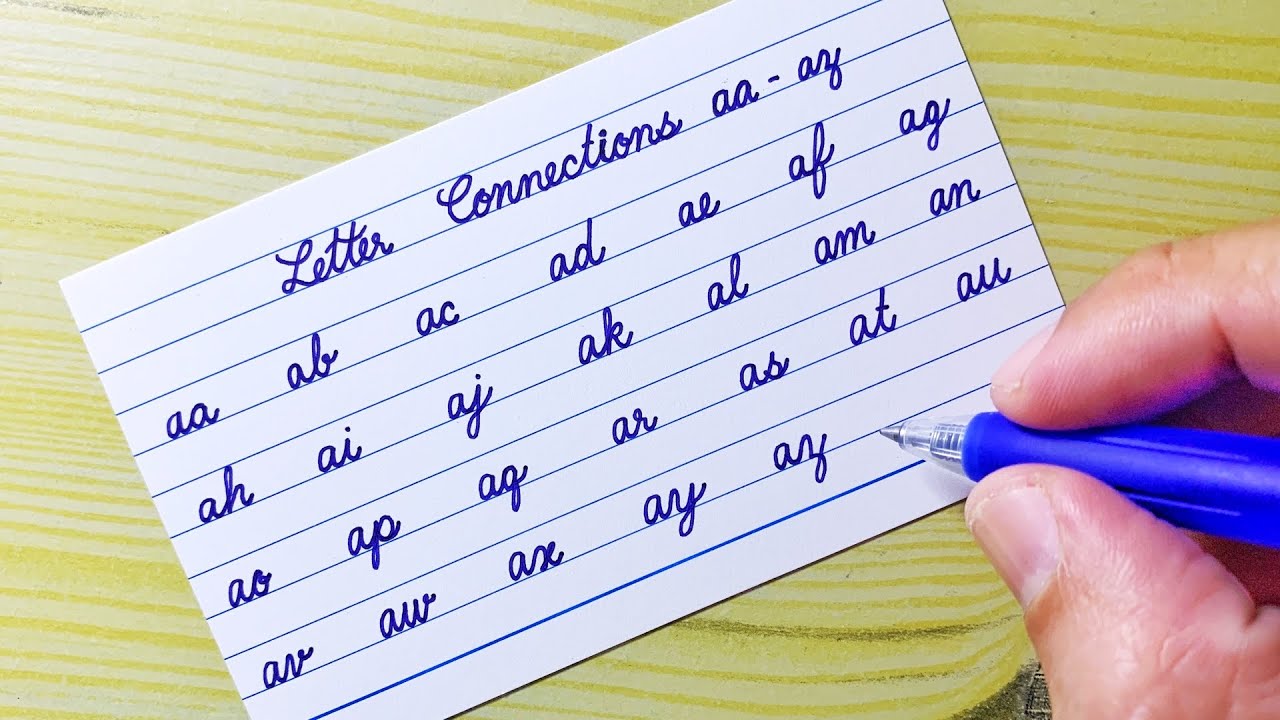 Letter Connections aa - az
aa ab ac ad ae af ag
ah ai aj ak al am an
ao ap aq ar as at au
av aw ax ay az